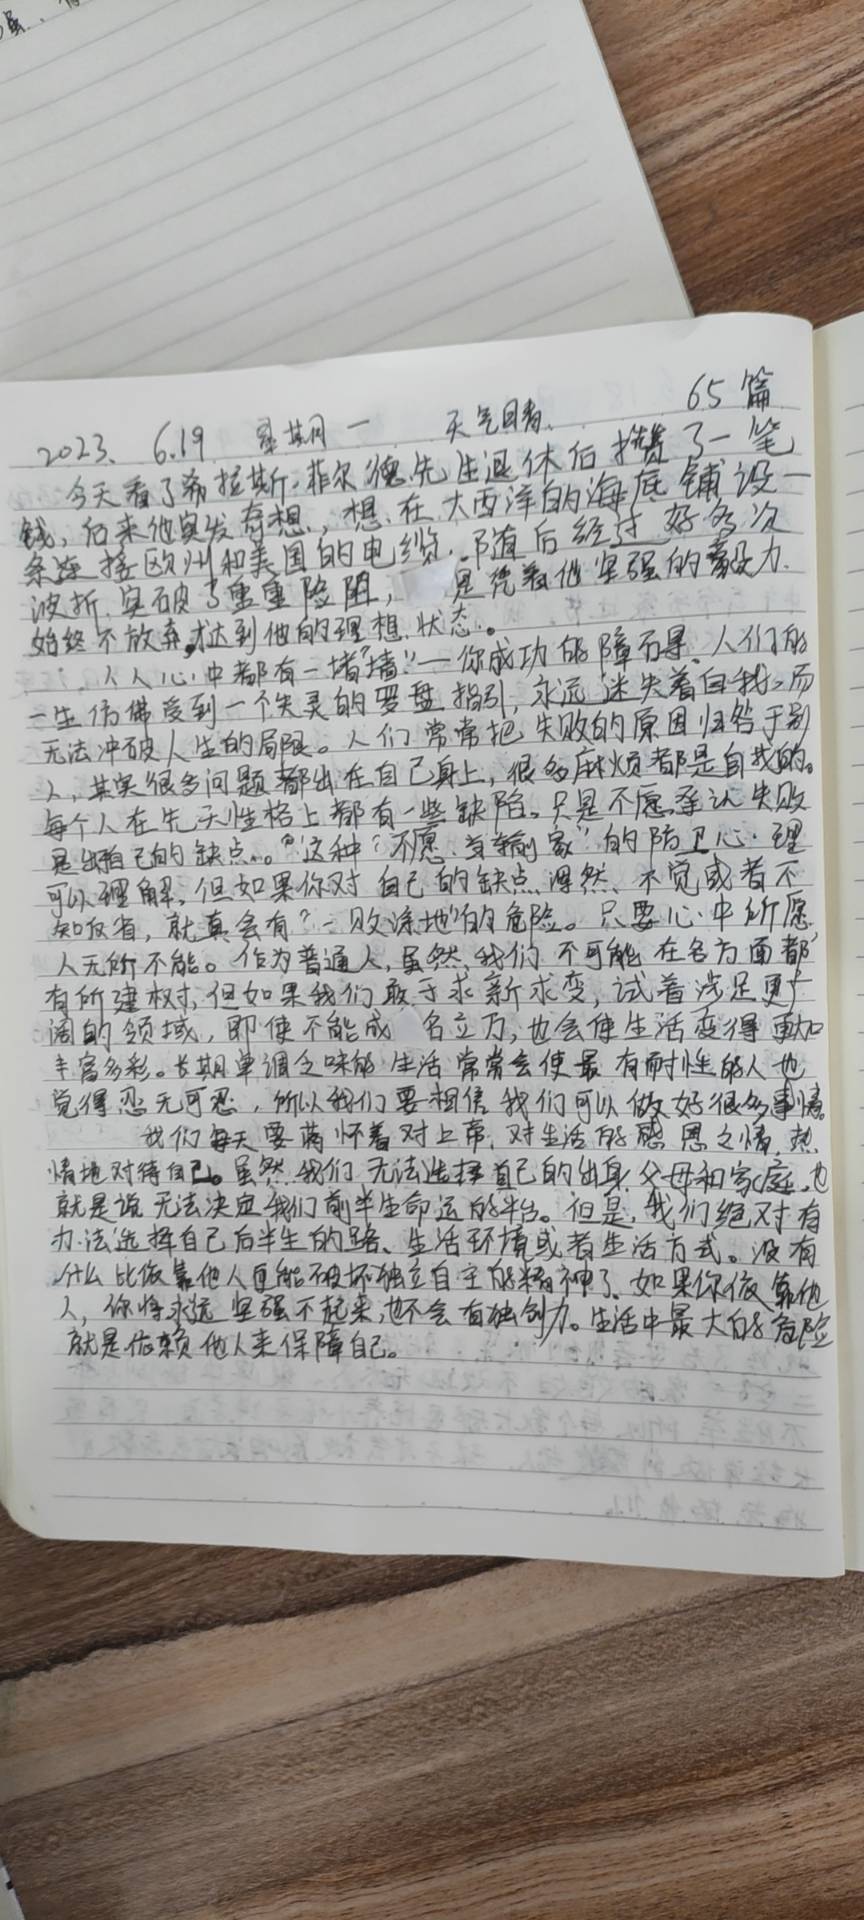 65篇
2023、 6.19 星期一 天气晴.
今天看了希拉斯·菲尔德先生退休后攒了一笔
钱，后来他突发奇想，想在大西洋的海底铺设一
条连接欧州和美国的电缆.随后经过好多次
波折.突破了重重险阻， 是凭着他坚强的毅力.
始终不放弃，才达到他的理想状态。
人人心中都有一堵“墙”—你成功的障碍.人们的
一生仿佛受到一个失灵的罗盘指引，永远迷失着自我，而
无法冲破人生的局限。人们常常把失败的原因归咎于别
人，其实很多问题都出在自己身上，很多麻烦都是自找的。
每个人在先天性格上都有一些缺陷。只是不愿承认失败
是出自己的缺点。“这种“不愿当输家”的防卫心理
可以理解，但如果你对自己的缺点浑然不觉或者不
知反省，就真会有“一败涂地”的危险。只要心中所愿，
人无所不能。作为普通人，虽然我们不可能在各方面都
有所建树，但如果我们敢于求新求变，试着涉足更广
阔的领域，即使不能成 名立万，也会使生活变得更加
丰富多彩。长期单调乏味的生活常常会使最有耐性的人也
觉得忍无可忍，所以我们要相信我们可以做好很多事情。
我们每天要满怀着对上帝，对生活的感恩之情，热
情地对待自己。虽然我们无法选择自己的出身、父母和家庭，也
就是说无法决定我们前半生命运的平台。但是，我们绝对有
办法选择自己后半生的路、生活环境或者生活方式。没有
什么比依靠他人更能破坏独立自主的精神了、如果你依靠他
人，你将永远坚强不起来，也不会有独创力。生活中最大的危险
就是依赖他人来保障自己。